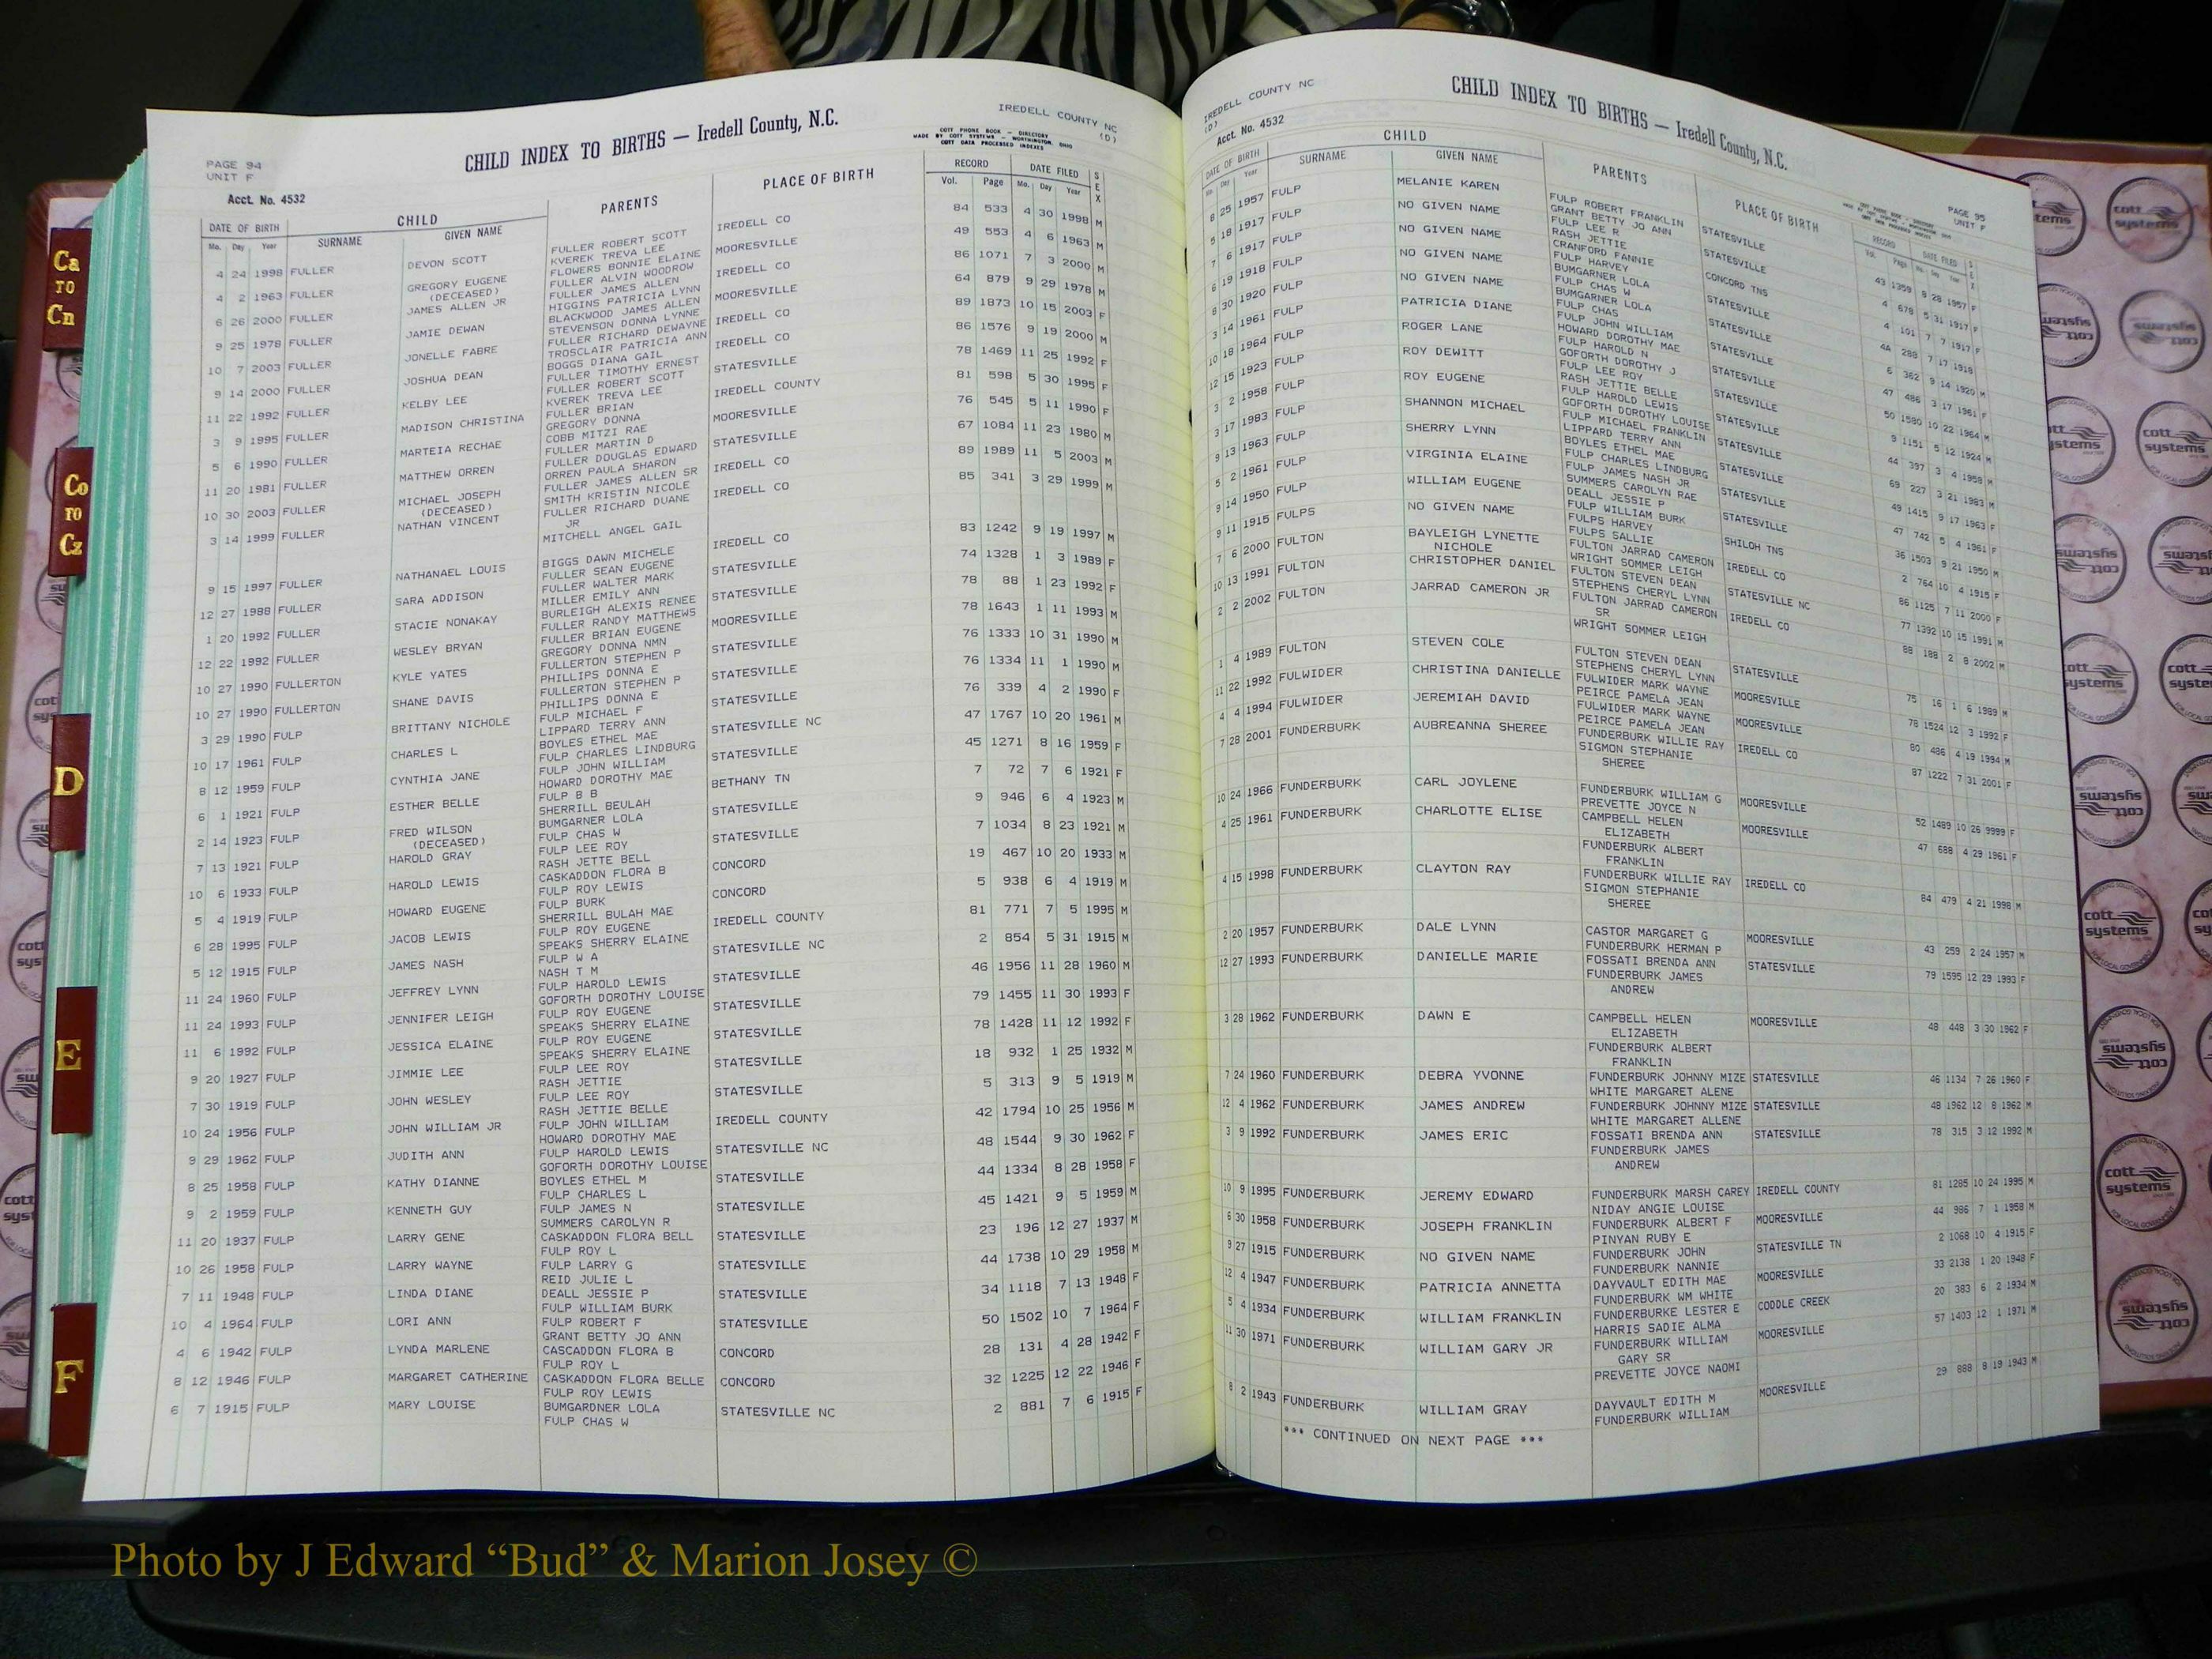 Ca
TO
Cn
Co
TO
Cz
D
E
F
PAGE 94
UNIT F
Acct. No. 4532
CHILD INDEX TO BIRTHS — Iredell County, N.C.
IREDELL COUNTY NC
(D)
COTT PHONE BOOK — DIRECTORY
MADE BY COTT SYSTEMS — WORTHINGTON, OHIO
COTT DATA PROCESSED INDEXES
DATE OF BIRTH CHILD PARENTS PLACE OF BIRTH RECORD DATE FILED SEX
Mo. Day Year SURNAME GIVEN NAME Vol. Page Mo. Day Year
4 24 1998 FULLER DEVON SCOTT FULLER ROBERT SCOTT IREDELL CO 84 533 4 30 1998 M
KVEREK TREVA LEE
4 2 1963 FULLER GREGORY EUGENE FLOWERS BONNIE ELAINE MOORESVILLE 49 553 4 6 1963 M
(DECEASED) FULLER ALVIN WOODROW
6 26 2000 FULLER JAMES ALLEN JR FULLER JAMES ALLEN IREDELL CO 86 1071 7 3 2000 M
HIGGINS PATRICIA LYNN
9 25 1978 FULLER JAMIE DEWAN BLACKWOOD JAMES ALLEN MOORESVILLE 64 879 9 29 1978 M
STEVENSON DONNA LYNNE
10 7 2003 FULLER JONELLE FABRE FULLER RICHARD DEWAYNE IREDELL CO 89 1873 10 15 2003 F
TROSCLAIR PATRICIA ANN
9 14 2000 FULLER JOSHUA DEAN BOGGS DIANA GAIL IREDELL CO 86 1576 9 19 2000 M
FULLER TIMOTHY ERNEST
11 22 1992 FULLER KELBY LEE FULLER ROBERT SCOTT STATESVILLE 78 1469 11 25 1992 F
KVEREK TREVA LEE
3 9 1995 FULLER MADISON CHRISTINA FULLER BRIAN IREDELL COUNTY 81 598 5 30 1995 F
GREGORY DONNA
5 6 1990 FULLER MARTEIA RECHAE COBB MITZI RAE MOORESVILLE 76 545 5 11 1990 F
FULLER MARTIN D
11 20 1981 FULLER MATTHEW ORREN FULLER DOUGLAS EDWARD STATESVILLE 67 1084 11 23 1980 M
ORREN PAULA SHARON
10 30 2003 FULLER MICHAEL JOSEPH FULLER JAMES ALLEN SR IREDELL CO 89 1989 11 5 2003 M
(DECEASED) SMITH KRISTIN NICOLE
3 14 1999 FULLER NATHAN VINCENT FULLER RICHARD DUANE IREDELL CO 85 341 3 29 1999 M
JR
MITCHELL ANGEL GAIL
9 15 1997 FULLER NATHANAEL LOUIS BIGGS DAWN MICHELE IREDELL CO 83 1242 9 19 1997 M
FULLER SEAN EUGENE
12 27 1988 FULLER SARA ADDISON FULLER WALTER MARK STATESVILLE 74 1328 1 3 1989 F
MILLER EMILY ANN
1 20 1992 FULLER STACIE NONAKAY BURLEIGH ALEXIS RENEE STATESVILLE 78 88 1 23 1992 F
FULLER RANDY MATTHEWS
12 22 1992 FULLER WESLEY BRYAN FULLER BRIAN EUGENE MOORESVILLE 78 1643 1 11 1993 M
GREGORY DONNA NMN
10 27 1990 FULLERTON KYLE YATES FULLERTON STEPHEN P STATESVILLE 76 1333 10 31 1990 M
PHILLIPS DONNA E
10 27 1990 FULLERTON SHANE DAVIS FULLERTON STEPHEN P STATESVILLE 76 1334 11 1 1990 M
PHILLIPS DONNA E
3 29 1990 FULP BRITTANY NICHOLE FULP MICHAEL F STATESVILLE 76 339 4 2 1990 F
LIPPARD TERRY ANN
10 17 1961 FULP CHARLES L BOYLES ETHEL MAE STATESVILLE NC 47 1767 10 20 1961 M
FULP CHARLES LINDBURG
8 12 1959 FULP CYNTHIA JANE FULP JOHN WILLIAM STATESVILLE 45 1271 8 16 1959 F
HOWARD DOROTHY MAE
6 1 1921 FULP ESTHER BELLE FULP B B BETHANY TN 7 72 7 6 1921 F
SHERRILL BEULAH
2 14 1923 FULP FRED WILSON BUMGARNER LOLA STATESVILLE 9 946 6 4 1923 M
(DECEASED) FULP CHAS W
7 13 1921 FULP HAROLD GRAY FULP LEE ROY STATESVILLE 7 1034 8 23 1921 M
RASH JETTE BELL
10 6 1933 FULP HAROLD LEWIS CASKADDON FLORA B CONCORD 19 467 10 20 1933 M
FULP ROY LEWIS
5 4 1919 FULP HOWARD EUGENE FULP BURK CONCORD 5 938 6 4 1919 M
SHERRILL BULAH MAE
6 28 1995 FULP JACOB LEWIS FULP ROY EUGENE IREDELL COUNTY 81 771 7 5 1995 M
SPEAKS SHERRY ELAINE
5 12 1915 FULP JAMES NASH FULP W A STATESVILLE NC 2 854 5 31 1915 M
NASH T M
11 24 1960 FULP JEFFREY LYNN FULP HAROLD LEWIS STATESVILLE 46 1956 11 28 1960 M
GOFORTH DOROTHY LOUISE
11 24 1993 FULP JENNIFER LEIGH FULP ROY EUGENE STATESVILLE 79 1455 11 30 1993 F
SPEAKS SHERRY ELAINE
11 6 1992 FULP JESSICA ELAINE FULP ROY EUGENE STATESVILLE 78 1428 11 12 1992 F
SPEAKS SHERRY ELAINE
9 20 1927 FULP JIMMIE LEE FULP LEE ROY STATESVILLE 18 932 1 25 1932 M
RASH JETTIE
7 30 1919 FULP JOHN WESLEY FULP LEE ROY STATESVILLE 5 313 9 5 1919 M
RASH JETTIE BELLE
10 24 1956 FULP JOHN WILLIAM JR FULP JOHN WILLIAM IREDELL COUNTY 42 1794 10 25 1956 M
HOWARD DOROTHY MAE
9 29 1962 FULP JUDITH ANN FULP HAROLD LEWIS STATESVILLE NC 48 1544 9 30 1962 F
GOFORTH DOROTHY LOUISE
8 25 1958 FULP KATHY DIANNE BOYLES ETHEL M STATESVILLE 44 1334 8 28 1958 F
FULP CHARLES L
9 2 1959 FULP KENNETH GUY FULP JAMES N STATESVILLE 45 1421 9 5 1959 M
SUMMERS CAROLYN R
11 20 1937 FULP LARRY GENE CASKADDON FLORA BELL STATESVILLE 23 196 12 27 1937 M
FULP ROY L
10 26 1958 FULP LARRY WAYNE FULP LARRY G STATESVILLE 44 1738 10 29 1958 M
REID JULIE L
7 11 1948 FULP LINDA DIANE DEALL JESSIE P STATESVILLE 34 1118 7 13 1948 F
FULP WILLIAM BURK
10 4 1964 FULP LORI ANN FULP ROBERT F STATESVILLE 50 1502 10 7 1964 F
GRANT BETTY JO ANN
4 6 1942 FULP LYNDA MARLENE CASCADDON FLORA B CONCORD 28 131 4 28 1942 F
FULP ROY L
8 12 1946 FULP MARGARET CATHERINE CASKADDON FLORA BELLE CONCORD 32 1225 12 22 1946 F
FULP ROY LEWIS
6 7 1915 FULP MARY LOUISE BUMGARDNER LOLA STATESVILLE NC 2 881 7 6 1915 F
FULP CHAS W
IREDELL COUNTY NC
(D)
Acct. No. 4532
CHILD INDEX TO BIRTHS — Iredell County, N.C.
PAGE 95
UNIT F
DATE OF BIRTH CHILD PARENTS PLACE OF BIRTH RECORD DATE FILED SEX
Day Year SURNAME GIVEN NAME Vol. Page
8 25 1957 FULP MELANIE KAREN FULP ROBERT FRANKLIN STATESVILLE 43 1359 8 28 1957 F
GRANT BETTY JO ANN
5 18 1917 FULP NO GIVEN NAME FULP LEE R STATESVILLE 4 678 5 31 1917 F
RASH JETTIE
7 6 1917 FULP NO GIVEN NAME CRANFORD FANNIE CONCORD TNS 4 101 7 7 1917 F
FULP HARVEY
6 19 1918 FULP NO GIVEN NAME BUMGARNER LOLA STATESVILLE 4A 288 7 17 1918
FULP CHAS W
8 30 1920 FULP NO GIVEN NAME BUMGARNER LOLA STATESVILLE 6 362 9 14 1920 M
FULP CHAS
3 14 1961 FULP PATRICIA DIANE FULP JOHN WILLIAM STATESVILLE 47 486 3 17 1961 F
HOWARD DOROTHY MAE
10 18 1964 FULP ROGER LANE FULP HAROLD N STATESVILLE 50 1580 10 22 1964 M
GOFORTH DOROTHY J
12 15 1923 FULP ROY DEWITT FULP LEE ROY STATESVILLE 9 1151 5 12 1924 M
RASH JETTIE BELLE
3 2 1958 FULP ROY EUGENE FULP HAROLD LEWIS STATESVILLE 44 397 3 4 1958 M
GOFORTH DOROTHY LOUISE
3 17 1983 FULP SHANNON MICHAEL FULP MICHAEL FRANKLIN STATESVILLE 69 227 3 21 1983 M
LIPPARD TERRY ANN
9 13 1963 FULP SHERRY LYNN BOYLES ETHEL MAE STATESVILLE 49 1415 9 17 1963 F
FULP CHARLES LINDBURG
5 2 1961 FULP VIRGINIA ELAINE FULP JAMES NASH JR STATESVILLE 47 742 5 4 1961 F
SUMMERS CAROLYN RAE
9 14 1950 FULP WILLIAM EUGENE DEALL JESSIE P STATESVILLE 36 1503 9 21 1950 M
FULP WILLIAM BURK
9 11 1915 FULPS NO GIVEN NAME FULPS HARVEY SHILOH TNS 2 764 10 4 1915 F
FULPS SALLIE
7 6 2000 FULTON BAYLEIGH LYNETTE FULTON JARRAD CAMERON IREDELL CO 86 1125 7 11 2000 F
NICHOLE WRIGHT SOMMER LEIGH
10 13 1991 FULTON CHRISTOPHER DANIEL FULTON STEVEN DEAN STATESVILLE NC 77 1392 10 15 1991 M
STEPHENS CHERYL LYNN
2 2 2002 FULTON JARRAD CAMERON JR FULTON JARRAD CAMERON IREDELL CO 88 188 2 8 2002 M
SR
WRIGHT SOMMER LEIGH
1 4 1989 FULTON STEVEN COLE FULTON STEVEN DEAN STATESVILLE 75 16 1 6 1989 M
STEPHENS CHERYL LYNN
11 22 1992 FULWIDER CHRISTINA DANIELLE FULWIDER MARK WAYNE MOORESVILLE 78 1524 12 3 1992 F
PEIRCE PAMELA JEAN
4 4 1994 FULWIDER JEREMIAH DAVID FULWIDER MARK WAYNE MOORESVILLE 80 486 4 19 1994 M
PEIRCE PAMELA JEAN
7 28 2001 FUNDERBURK AUBREANNA SHEREE FUNDERBURK WILLIE RAY IREDELL CO 87 1222 7 31 2001 F
SIGMON STEPHANIE
SHEREE
10 24 1966 FUNDERBURK CARL JOYLENE FUNDERBURK WILLIAM G MOORESVILLE 52 1489 10 26 9999 F
PREVETTE JOYCE N
4 25 1961 FUNDERBURK CHARLOTTE ELISE CAMPBELL HELEN MOORESVILLE 47 688 4 29 1961 F
ELIZABETH
FUNDERBURK ALBERT
FRANKLIN
4 15 1998 FUNDERBURK CLAYTON RAY FUNDERBURK WILLIE RAY IREDELL CO 84 479 4 21 1998 M
SIGMON STEPHANIE
SHEREE
2 20 1957 FUNDERBURK DALE LYNN CASTOR MARGARET G MOORESVILLE 43 259 2 24 1957 M
FUNDERBURK HERMAN P
12 27 1993 FUNDERBURK DANIELLE MARIE FOSSATI BRENDA ANN STATESVILLE 79 1595 12 29 1993 F
FUNDERBURK JAMES
ANDREW
3 28 1962 FUNDERBURK DAWN E CAMPBELL HELEN MOORESVILLE 48 448 3 30 1962 F
ELIZABETH
FUNDERBURK ALBERT
FRANKLIN
7 24 1960 FUNDERBURK DEBRA YVONNE FUNDERBURK JOHNNY MIZE STATESVILLE 46 1134 7 26 1960 F
WHITE MARGARET ALENE
12 4 1962 FUNDERBURK JAMES ANDREW FUNDERBURK JOHNNY MIZE STATESVILLE 48 1962 12 8 1962 M
WHITE MARGARET ALLENE
3 9 1992 FUNDERBURK JAMES ERIC FOSSATI BRENDA ANN STATESVILLE 78 315 3 12 1992 M
FUNDERBURK JAMES
ANDREW
10 9 1995 FUNDERBURK JEREMY EDWARD FUNDERBURK MARSH CAREY IREDELL COUNTY 81 1285 10 24 1995 M
NIDAY ANGIE LOUISE
6 30 1958 FUNDERBURK JOSEPH FRANKLIN FUNDERBURK ALBERT F MOORESVILLE 44 986 7 1 1958 M
PINYAN RUBY E
9 27 1915 FUNDERBURK NO GIVEN NAME FUNDERBURK JOHN STATESVILLE TN 2 1068 10 4 1915 F
FUNDERBURK NANNIE
12 4 1947 FUNDERBURK PATRICIA ANNETTA DAYVAULT EDITH MAE MOORESVILLE 33 2138 1 20 1948 F
FUNDERBURK WM WHITE
5 4 1934 FUNDERBURK WILLIAM FRANKLIN FUNDERBURKE LESTER E CODDLE CREEK 20 383 6 2 1934 M
HARRIS SADIE ALMA
11 30 1971 FUNDERBURK WILLIAM GARY JR FUNDERBURK WILLIAM MOORESVILLE 57 1403 12 1 1971 M
GARY SR
PREVETTE JOYCE NAOMI
8 2 1943 FUNDERBURK WILLIAM GRAY DAYVAULT EDITH M MOORESVILLE 29 888 8 19 1943 M
FUNDERBURK WILLIAM
*** CONTINUED ON NEXT PAGE ***
cott
systems
Photo by J Edward “Bud” & Marion Josey ©